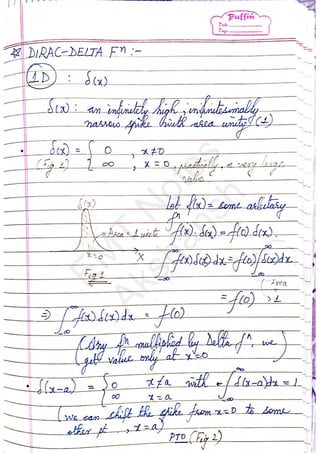 Puffin
Date
Page
* DIRAC-DELTA Fⁿ :-
(1D) : δ(x)
δ(x) : an infinitely high, infinitesimally
narrow spike with area unity (1)
• δ(x) = { 0 , x≠0
(Fig 1) { ∞ , x = 0, practically, a very large
value
δ(x)
Area = 1 unit
x=0
X
Fig 1
Let f(x) = some arbitrary
fⁿ
f(x). δ(x) = f(0) δ(x).
∫_{-∞}^{∞} f(x) δ(x) dx = f(0) ∫_{-∞}^{∞} δ(x) dx
= f(0)
1
⇒ ∫_{-∞}^{∞} f(x) δ(x) dx = f(0)
(Any fⁿ multiplied by Delta fⁿ, we
get value only at x=0)
• δ(x-a) = { 0 x≠a with • ∫_{-∞}^{∞} δ(x-a) dx = 1
{ ∞ x=a
(we can shift the spike from x=0 to some
other pt , x=a)
PTO (Fig 2)